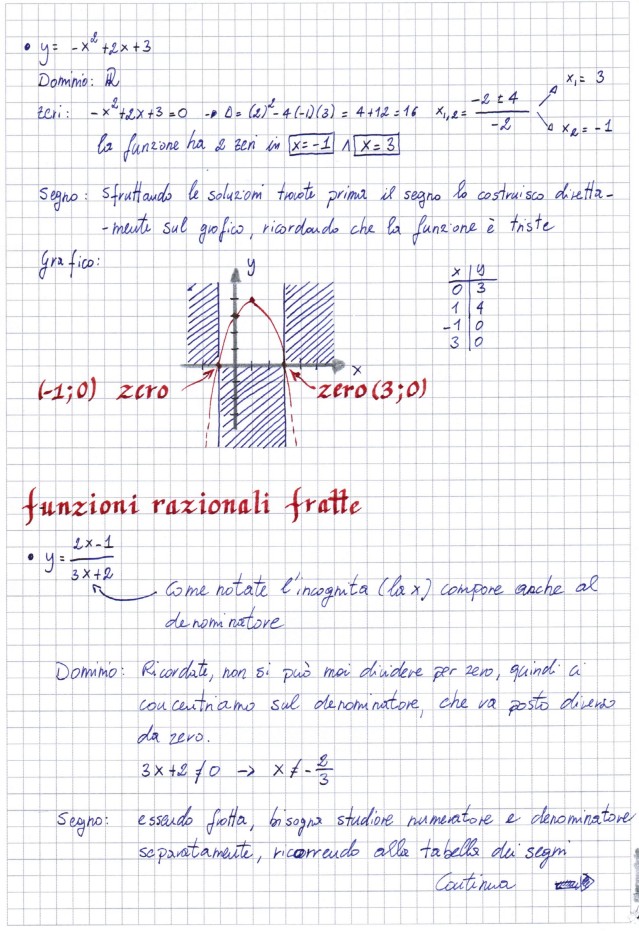 • y = -x² + 2x + 3
Dominio: ℝ
zeri: -x² + 2x + 3 = 0 → Δ = (2)² - 4(-1)(3) = 4 + 12 = 16 x₁,₂ = (-2 ± 4)/(-2) x₁ = 3
x₂ = -1
la funzione ha 2 zeri in x = -1 ∧ x = 3
Segno: Sfruttando le soluzioni trovate prima il segno lo costruisco diretta-
-mente sul grafico, ricordando che la funzione è triste
Grafico:
y
x
x | y
0 | 3
1 | 4
-1 | 0
3 | 0
(-1;0) zero
zero (3;0)
funzioni razionali fratte
• y = (2x-1)/(3x+2)
Come notate l'incognita (la x) compare anche al
denominatore
Dominio: Ricordate, non si può mai dividere per zero, quindi ci
concentriamo sul denominatore, che va posto diverso
da zero.
3x + 2 ≠ 0 → x ≠ -2/3
Segno: essendo fratta, bisogna studiare numeratore e denominatore
separatamente, ricorrendo alla tabella dei segni
Continua